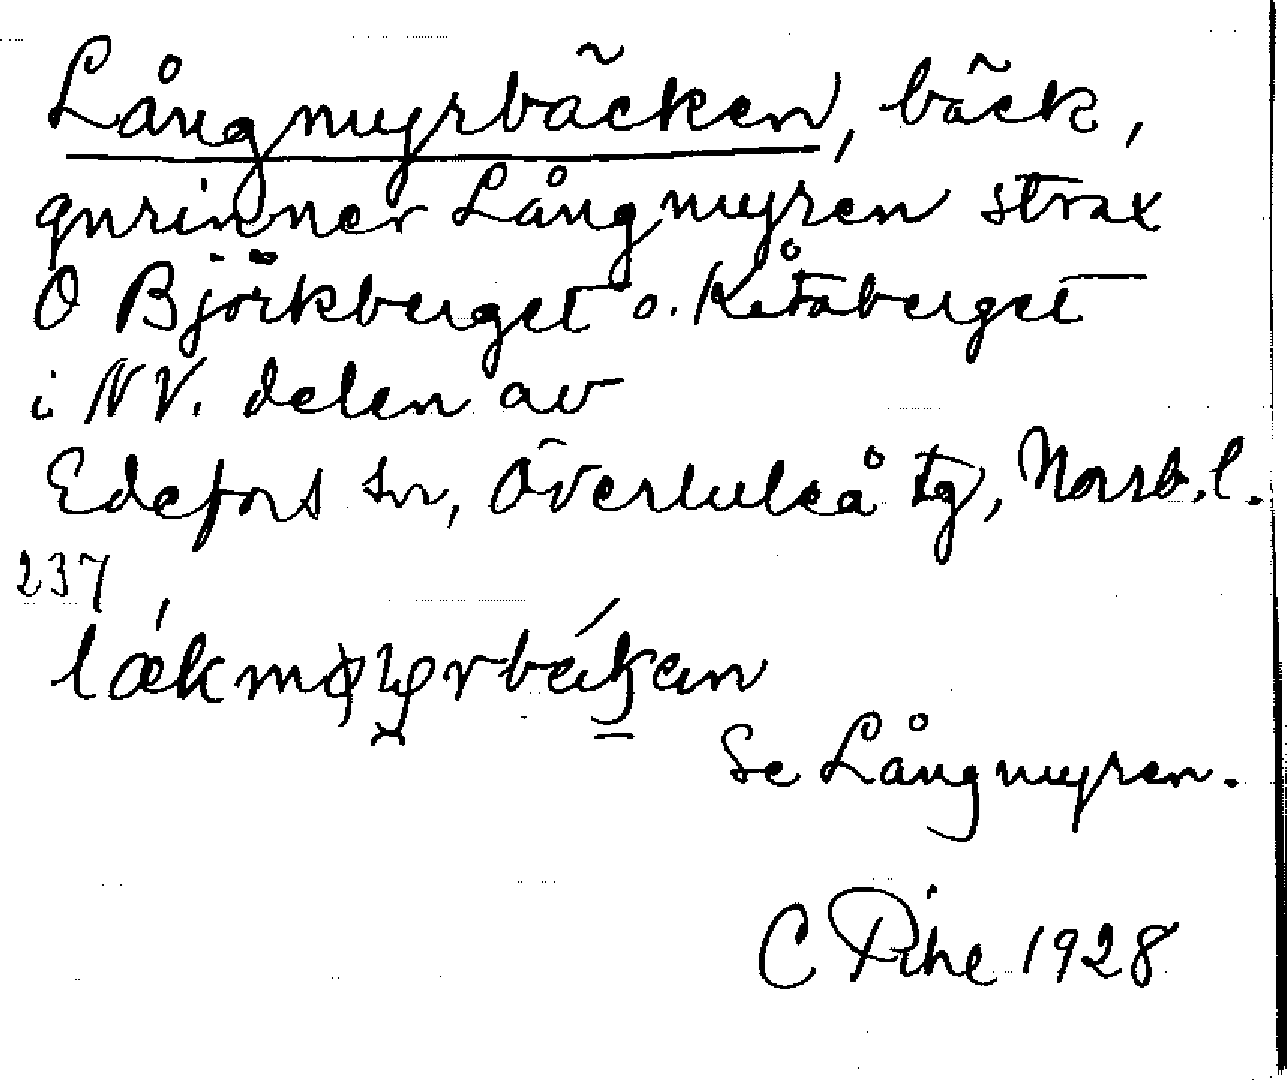 Långmyrbäcken, bäck,
gnrinner Långmyren strax
O Björkberget o. Kåtaberget
i NV. delen av
Edefors sn, Överluleå tg, Norrb. l.
237
Se Långmyren.
C Pihl 1928